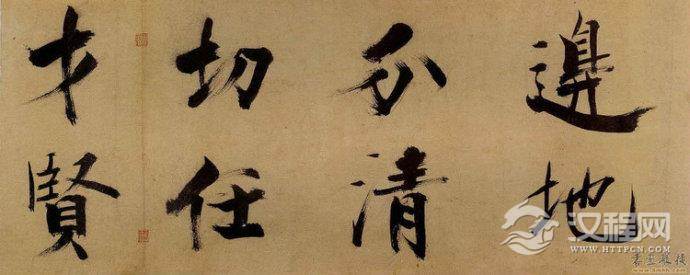 邊地
分清
切任
才賢
汉程网
HTTPCN.COM